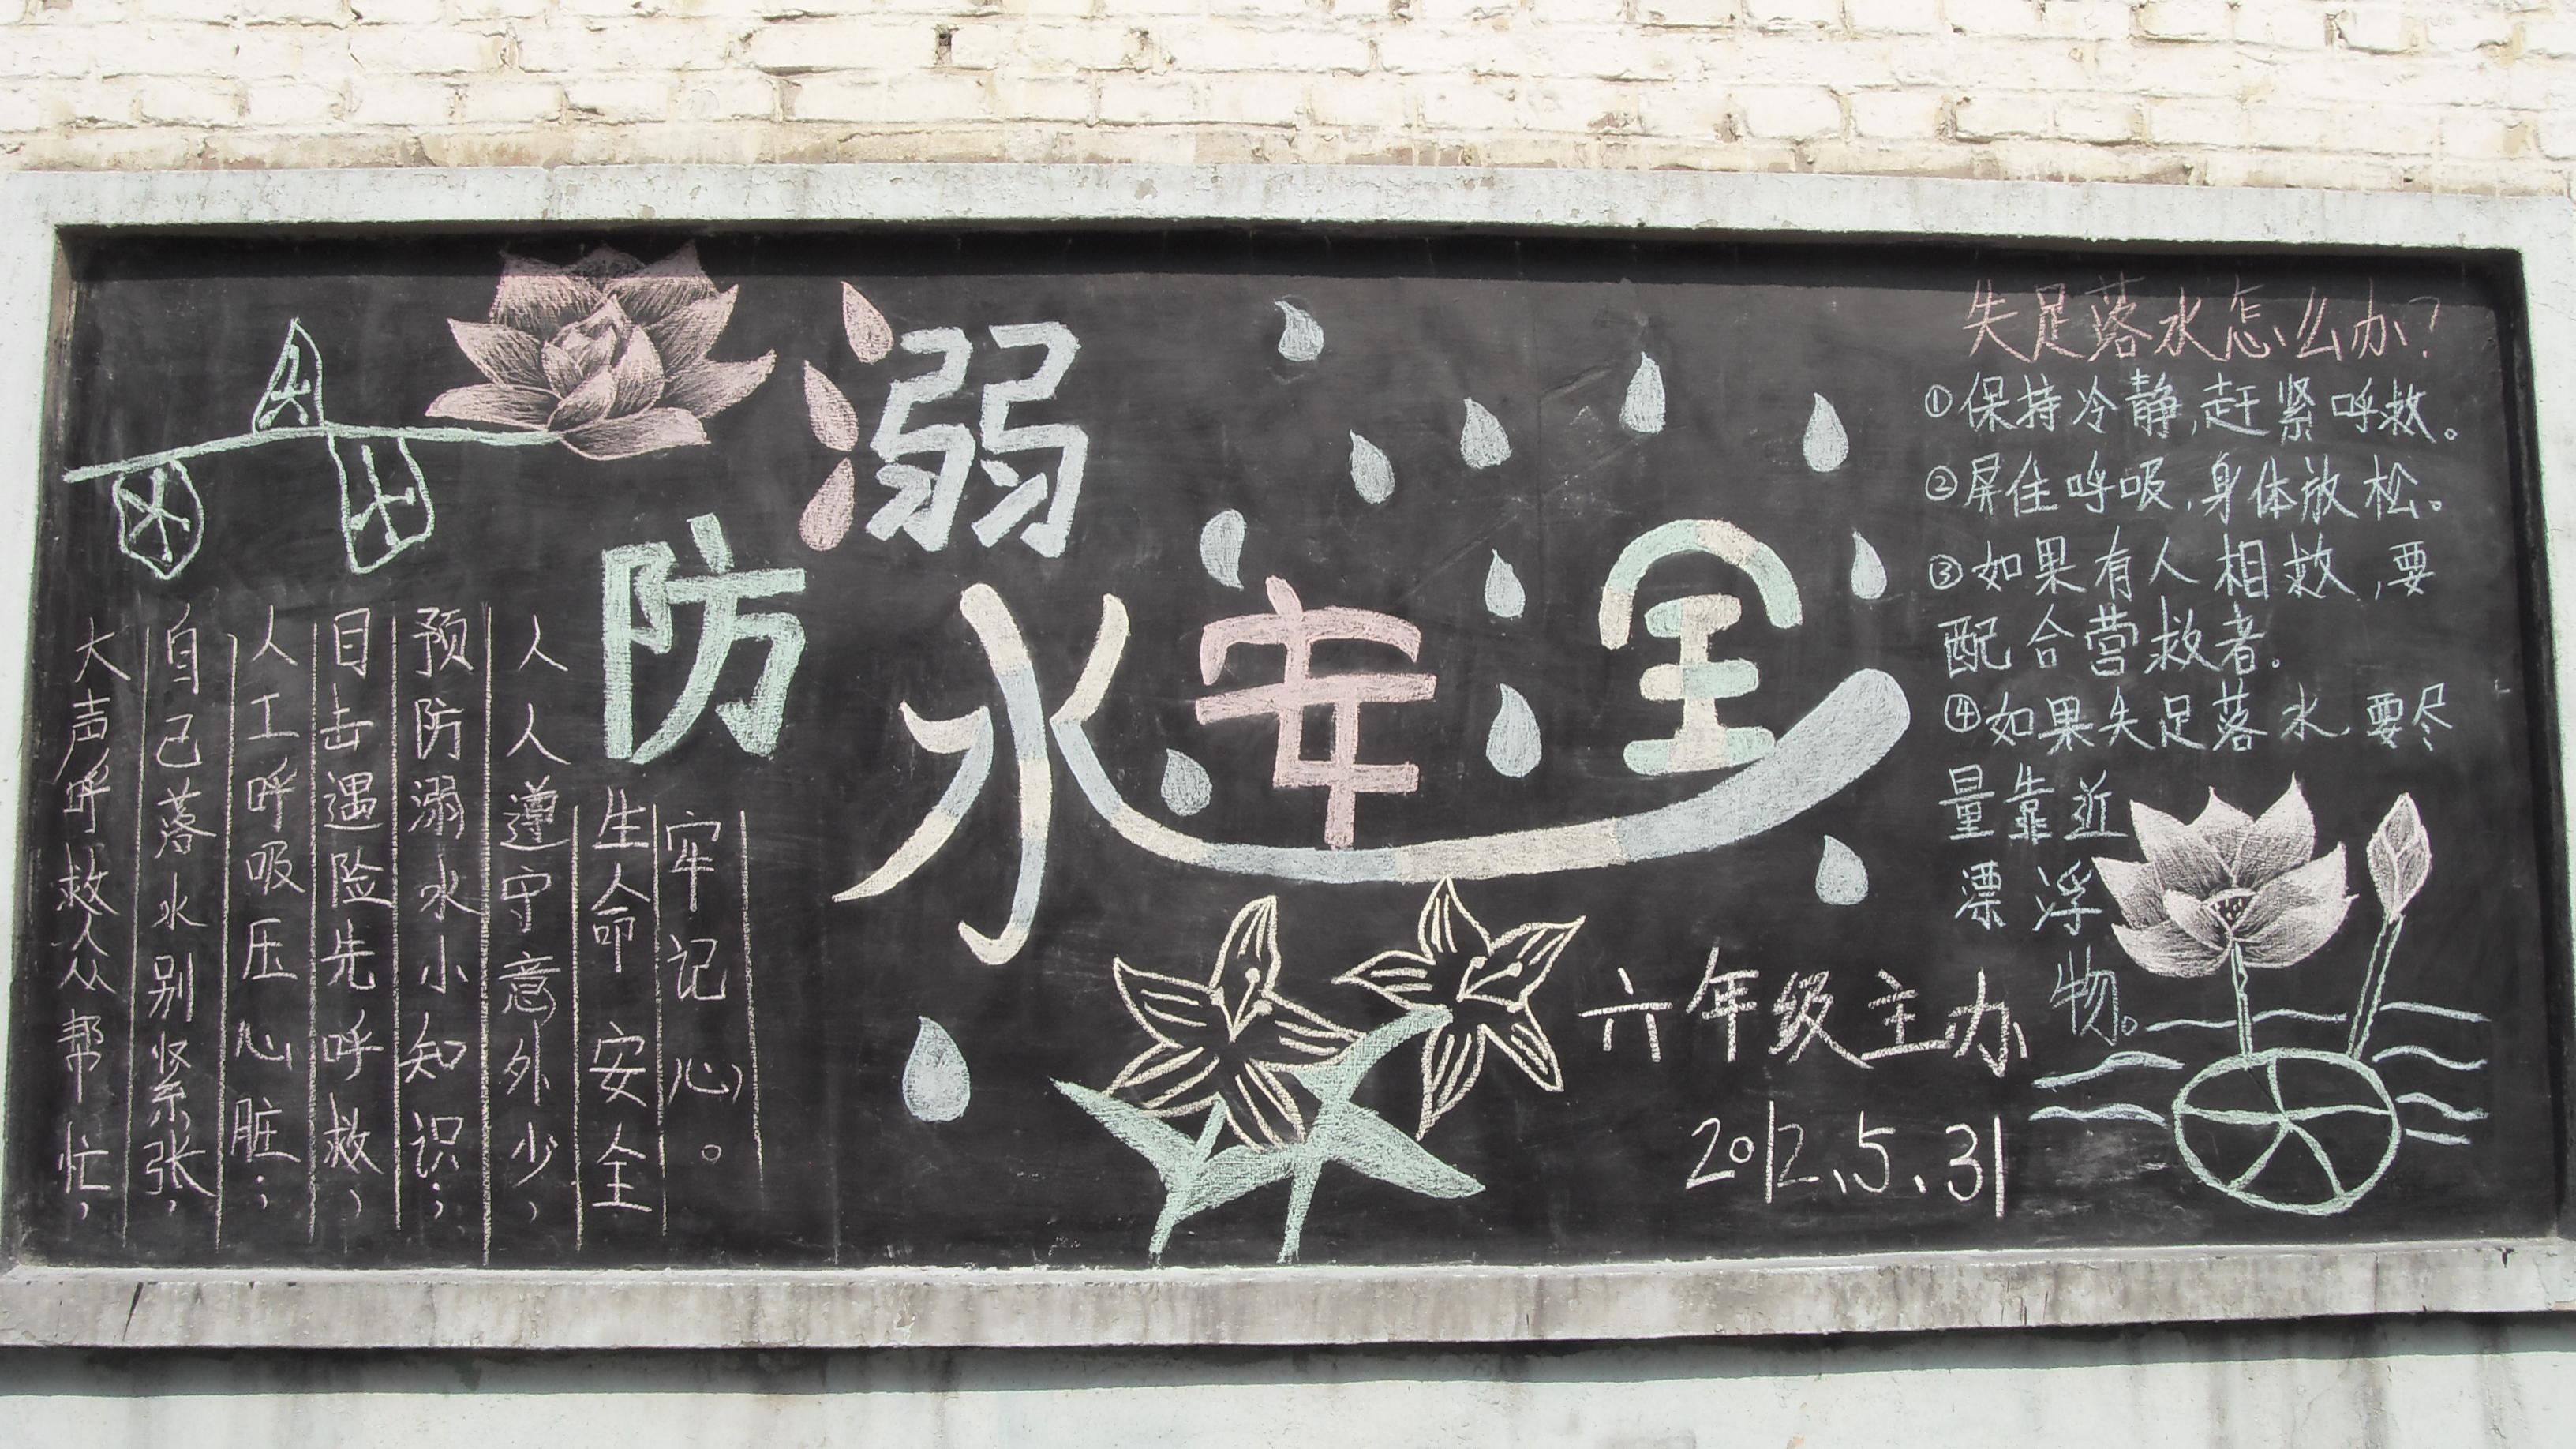 防溺水安全
大声呼救众帮忙，
自己落水别紧张，
人工呼吸压心脏；
目击遇险先呼救，
预防溺水小知识；
人人遵守意外少，
生命安全
牢记心。
失足落水怎么办？
①保持冷静,赶紧呼救。
②屏住呼吸,身体放松。
③如果有人相救,要
配合营救者.
④如果失足落水.要尽
量靠近
漂浮
物。
六年级主办
2012、5、31